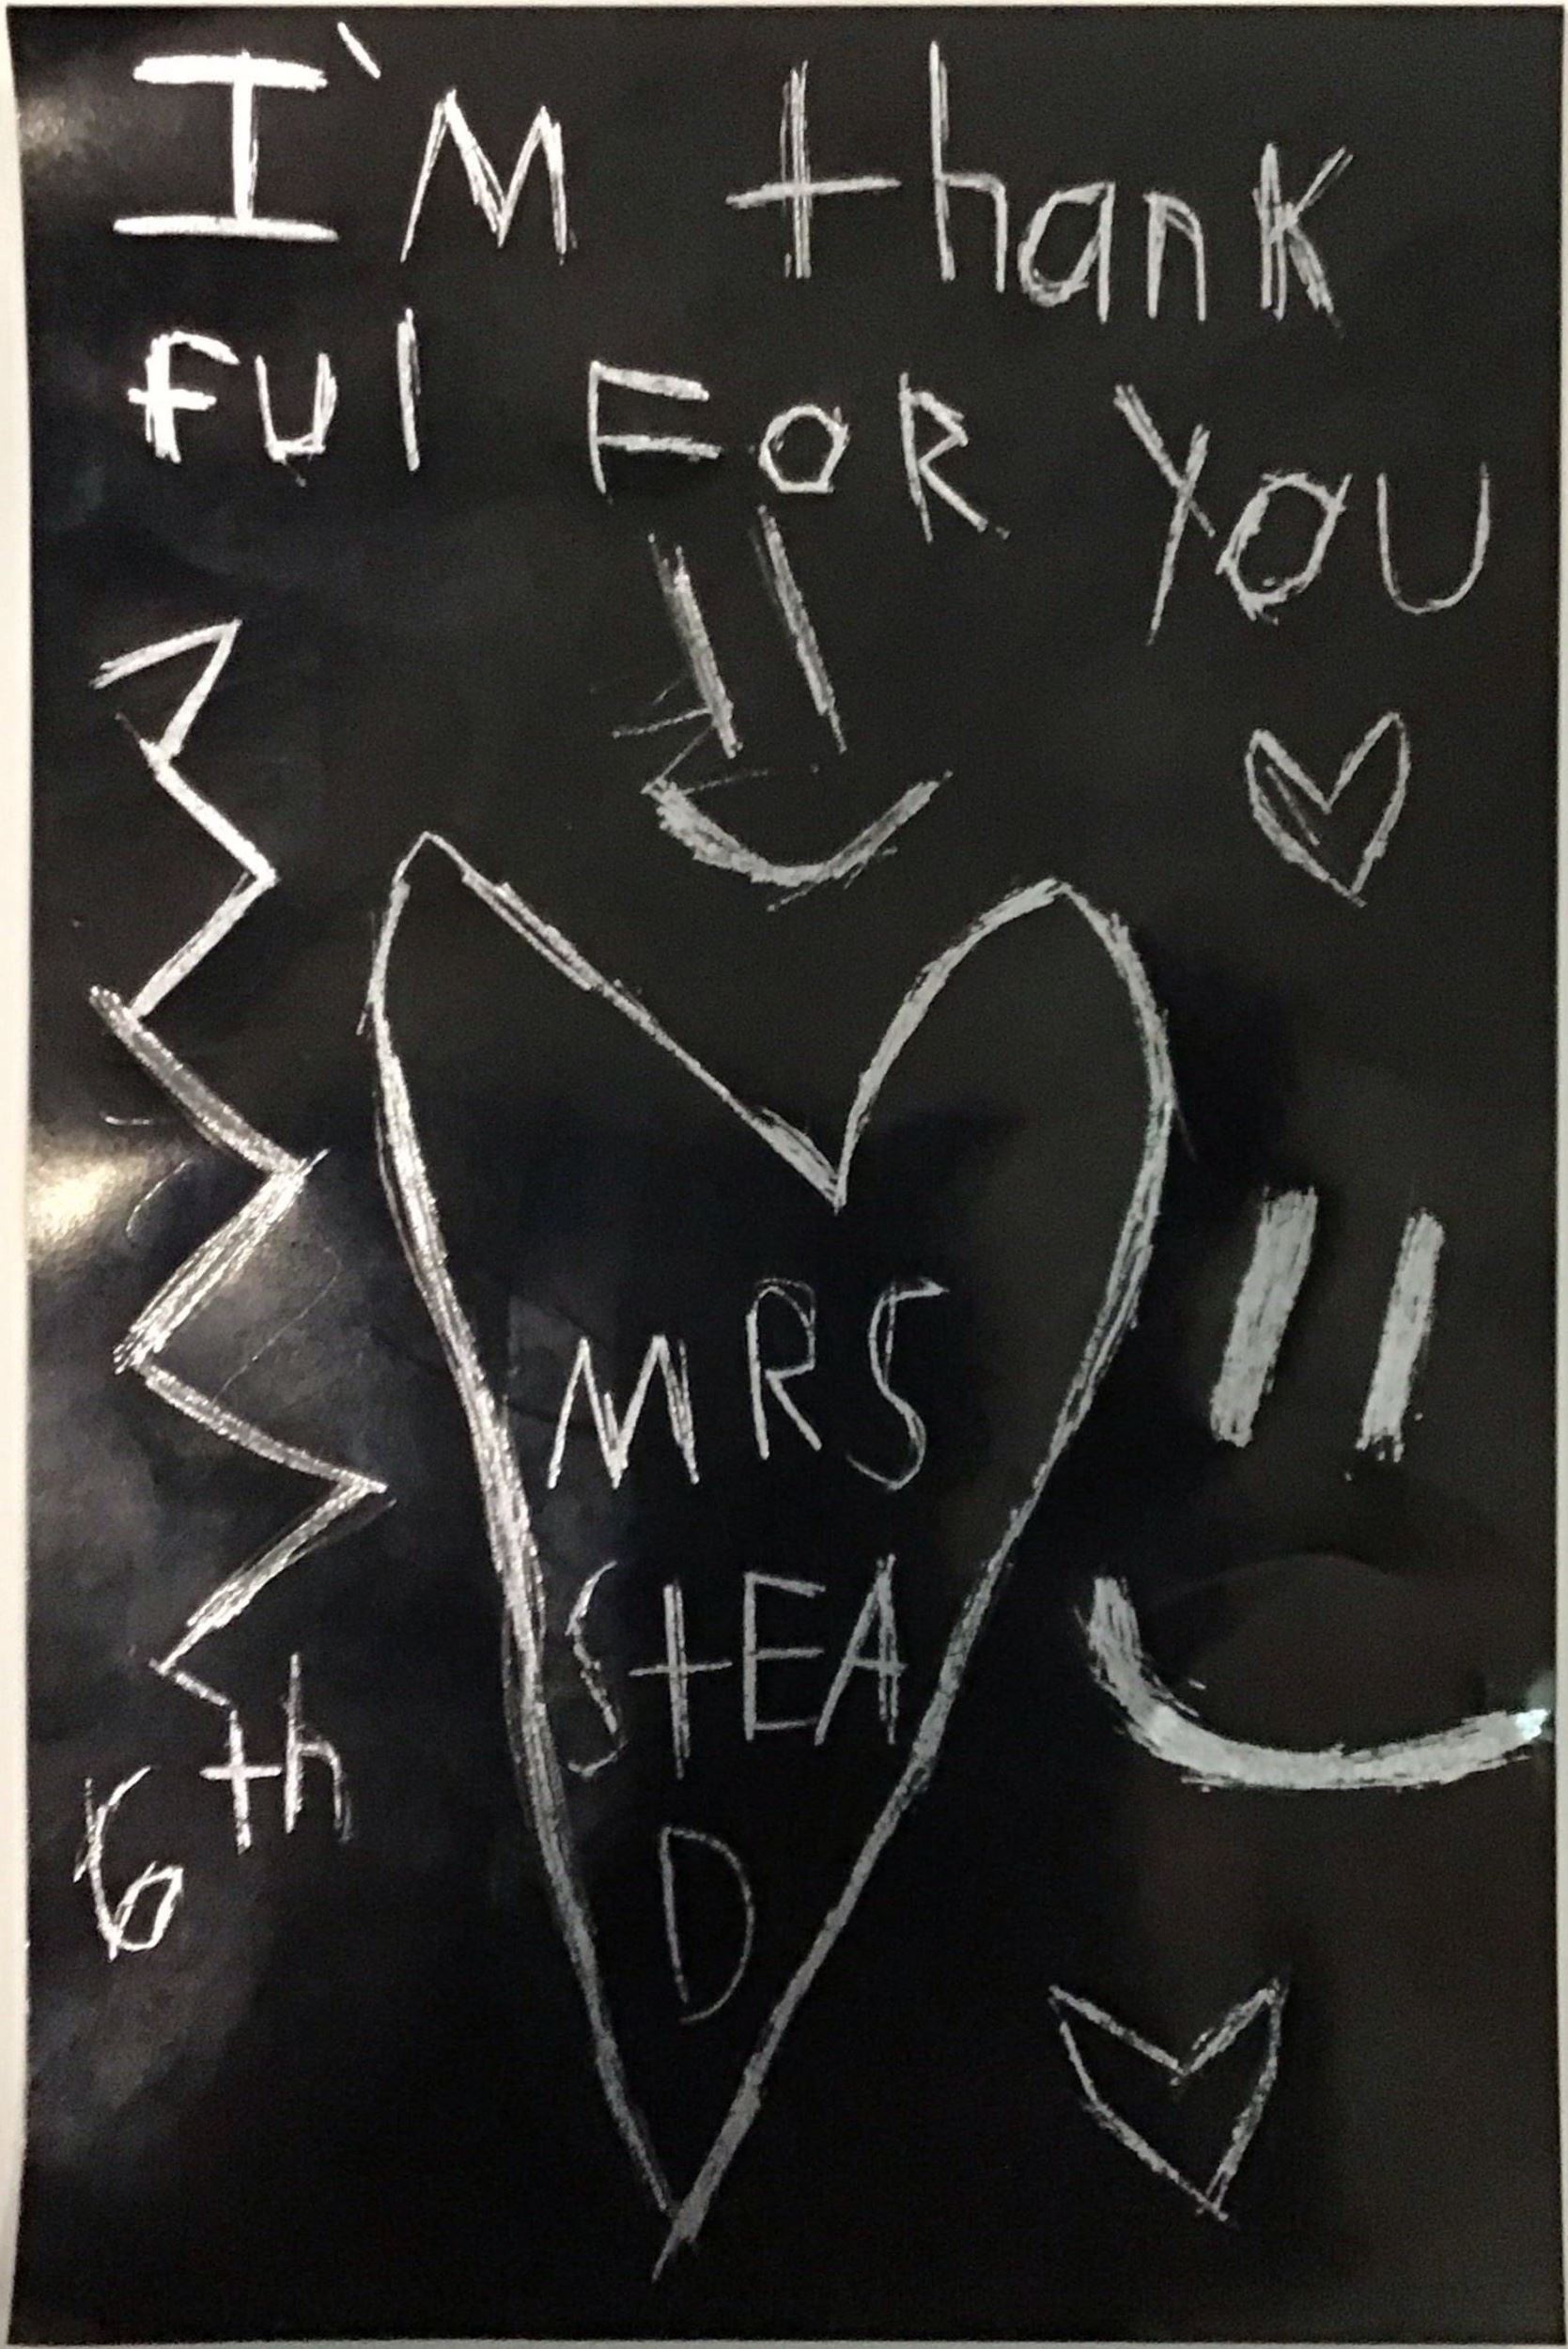 I'M thank
ful FOR YOU
MRS
StEA
D
6th